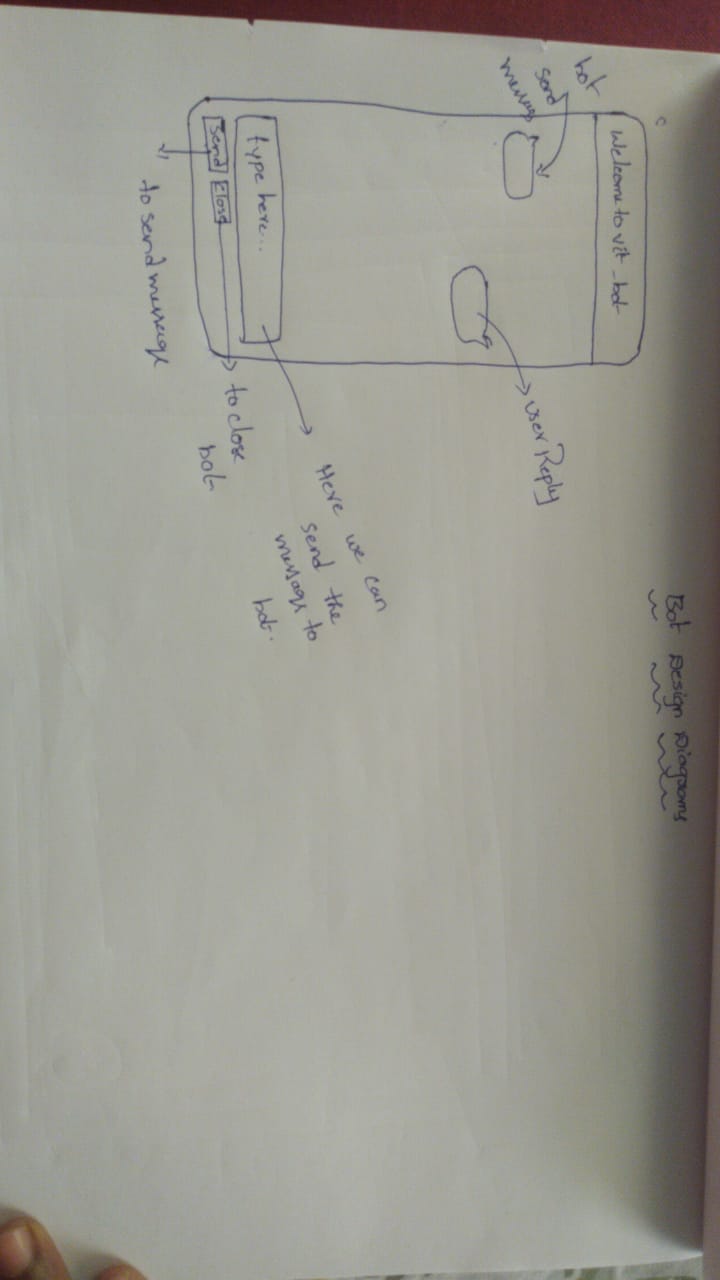 Bot Design Diagrams
Welcome to vit_bot
bot
send
message
user Reply
type here...
Here we can
send the
message to
bot.
Send
Close
to close
bot
to send message